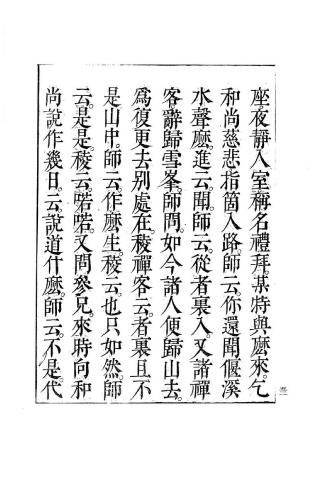 座。夜靜入室稱名禮拜。某特與麽來。乞
和尚慈悲指箇入路。師云。你還聞偃溪
水聲麽。進云。聞。師云。從者裏入。又諸禪
客辭歸雪峯。師問。如今諸人便歸山去。
爲復更去別處在。稜禪客云。者裏且不
是山中。師云。作麽生。稜云。也只如然。師
云。是是。稜云。喏喏。又問參兄。來時向和
尚說作幾日。云。說道什麽。師云。不是。代